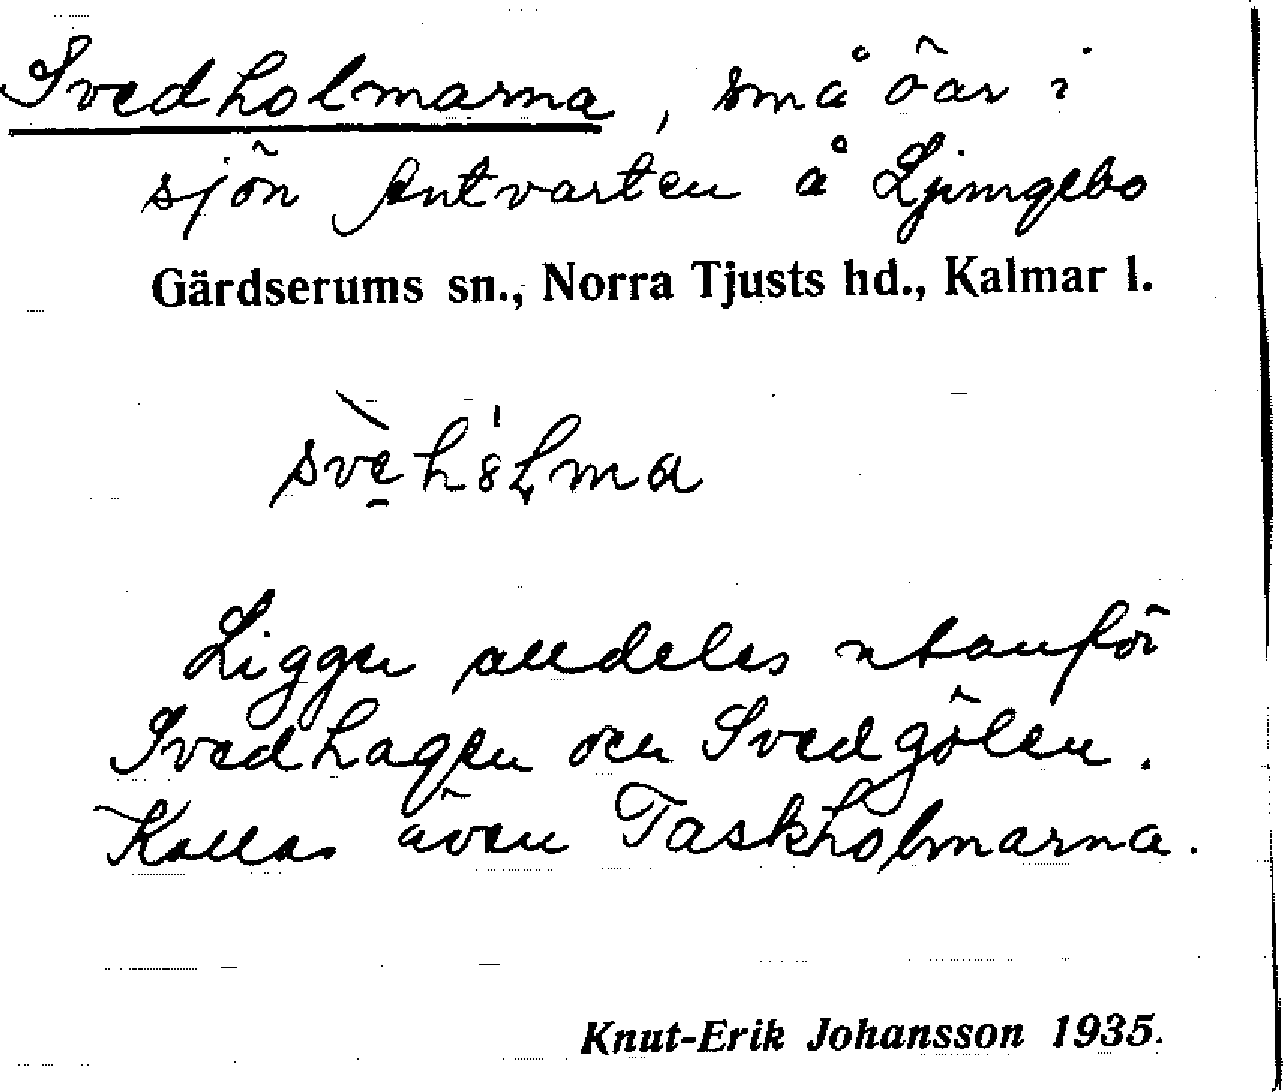 Svedholmarna, små öar i
sjön Entvarten å Ljungebo
Gärdserums sn., Norra Tjusts hd., Kalmar l.
Ligger alldeles utanför
Svedhagen och Svedgölen.
Kallas även Taskholmarna.
Knut-Erik Johansson 1935.